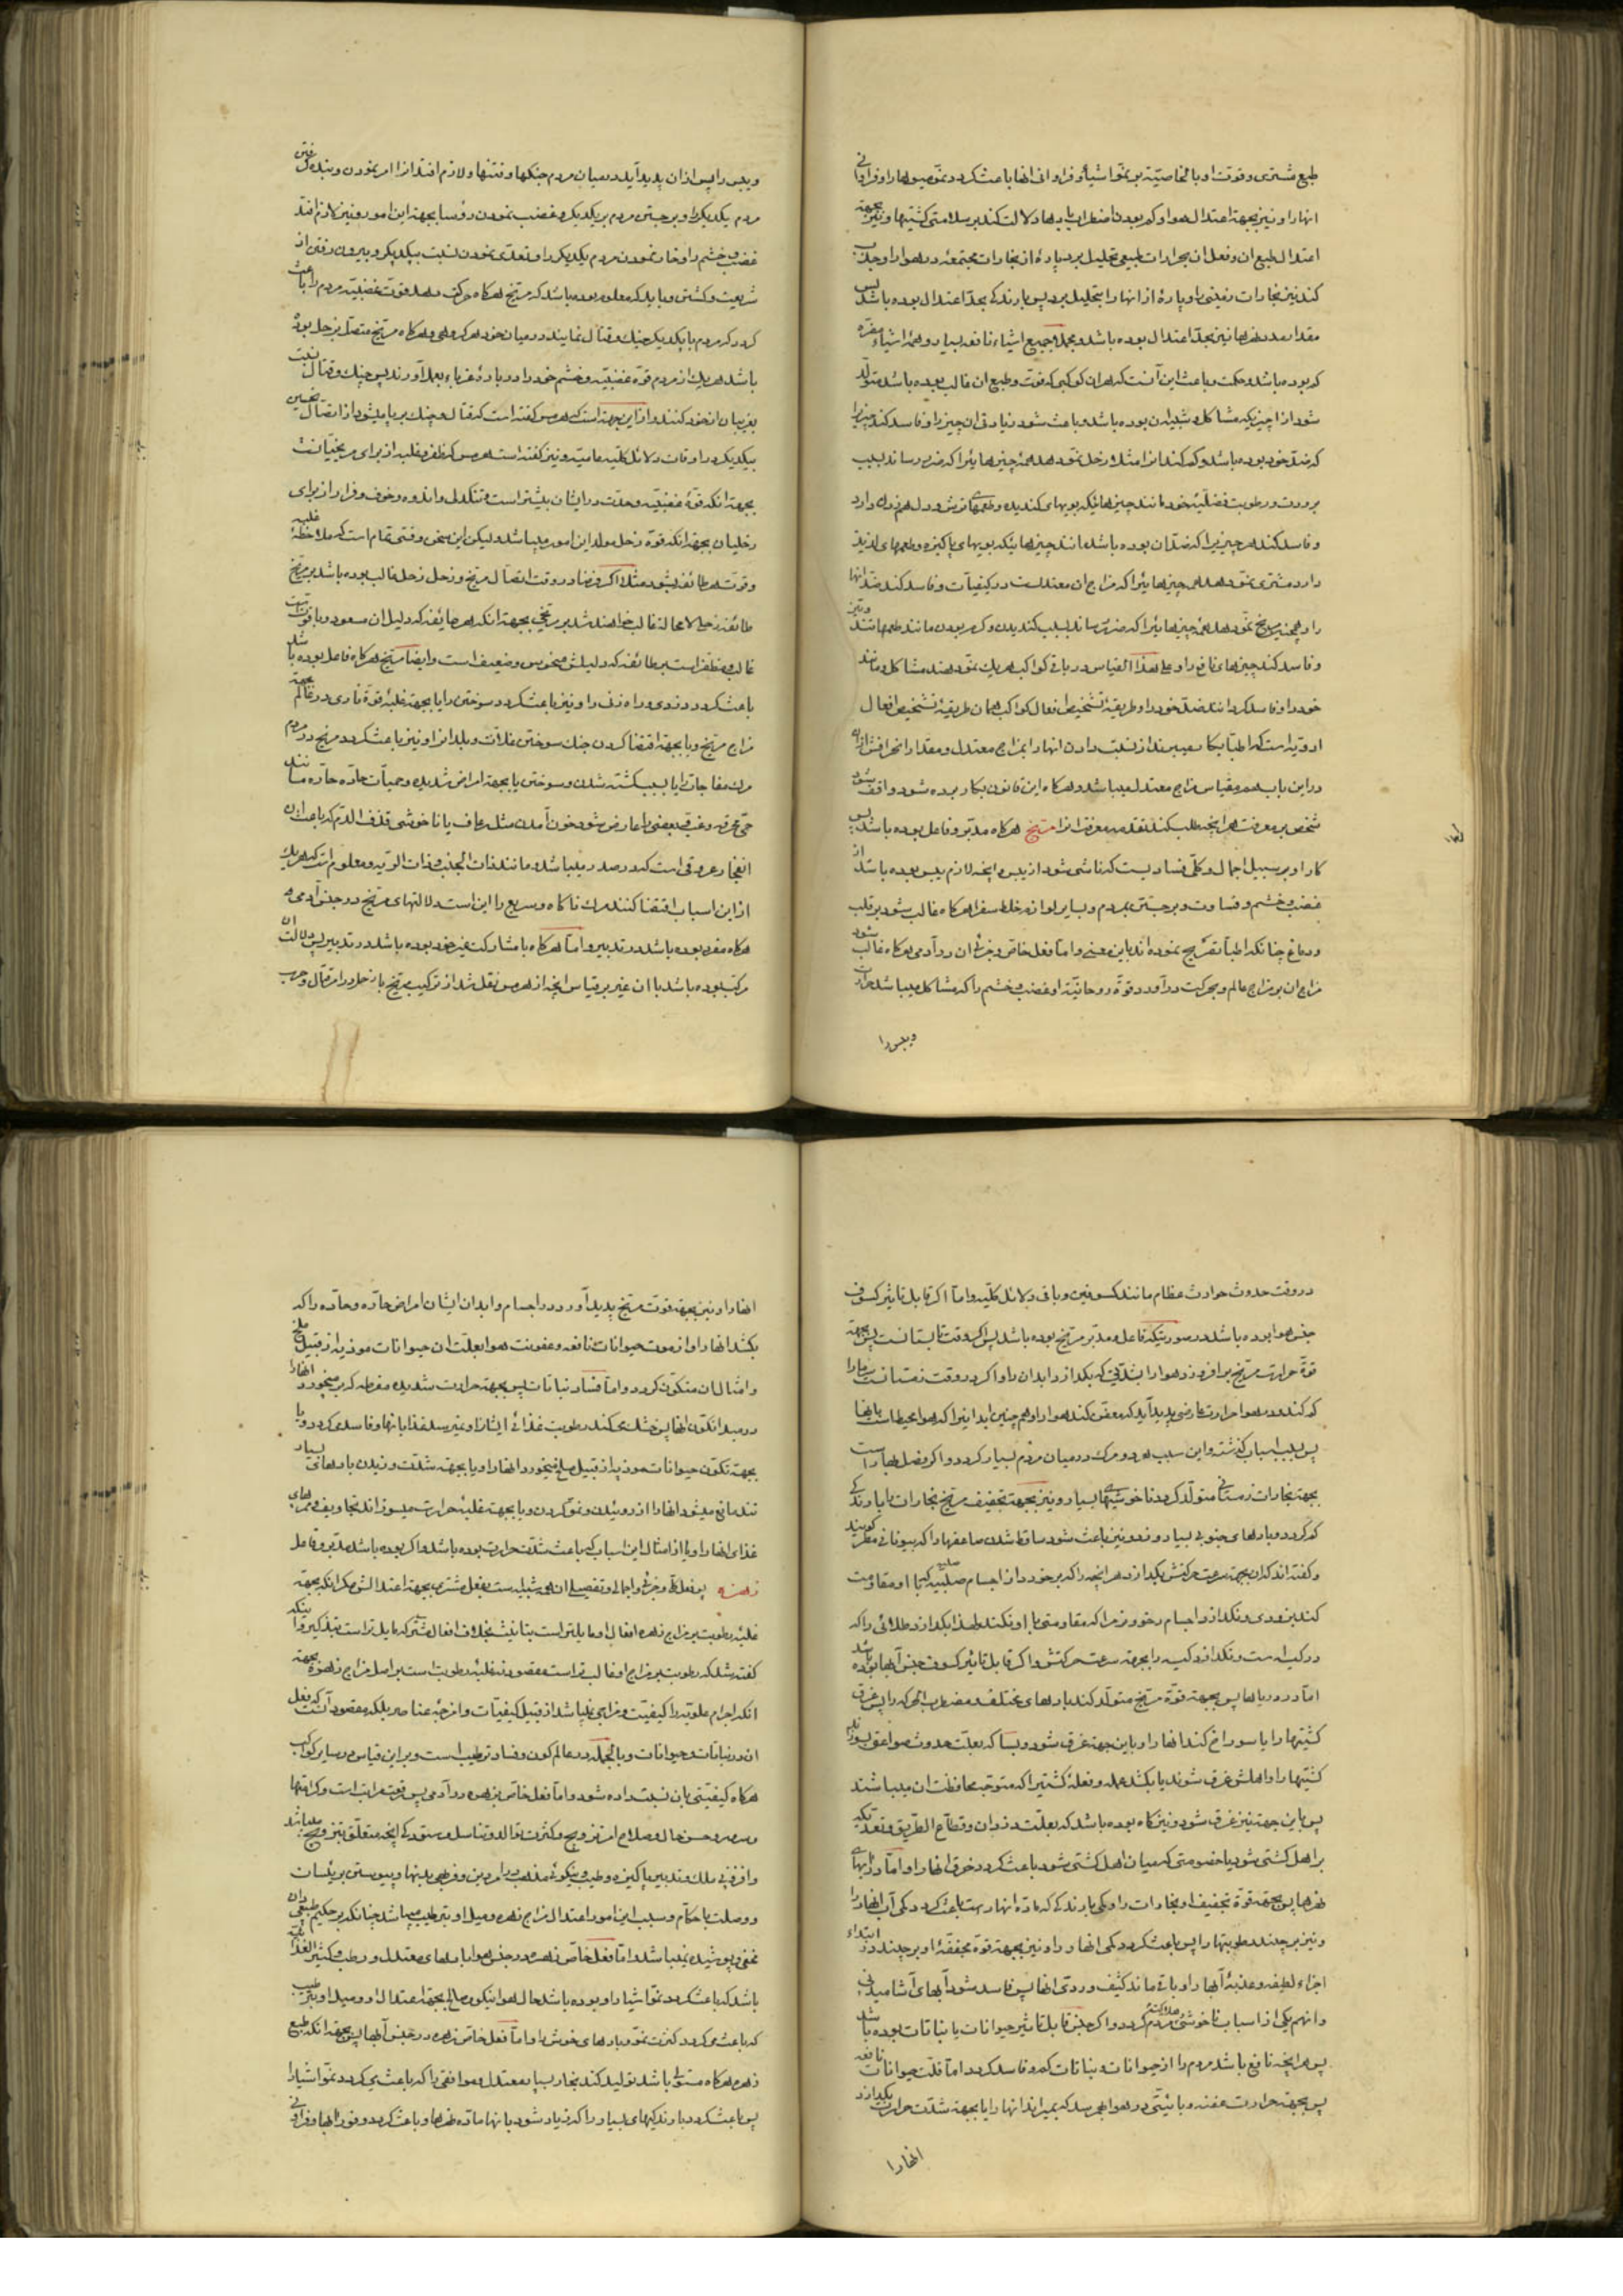 طبع مشتری و قوت او بالخاصیّته بر نموّ اشیاء و فراوانی انها باعث کردد نموّ میوها را و فراوانی
انها را و نیز بجهة اعتدال هوا و کم بودن اضطراب بادها دلالت کند بر سلامتی کشتیها و نیز بجهة
اعتدال طبع ان و فعل ان بحرارات طبیعی تحلیل برد پارهٔ از بخارات مجتمعه در هوا را و جذب
کند نیز بخارات زمینی را و پارهٔ از انها را بتحلیل برد پس بارندکی بحدّ اعتدال بوده باشد پس
مقدار مد نهرها نیز بحدّ اعتدال بوده باشد و بجملة جمیع اشیاء نافعه بسیار و همهٔ اشیاء مضرّه
کم بوده باشد و حکمت و باعث این آنست که هر ان کوکبی که قوت و طبع ان غالب بوده باشد متولّد
شود از ا چیزیکه مشاکل و شبیه ان بوده باشد و باعث شود زیادتی ان چیز را و فاسد کند چیزیرا
که ضدّ خود بوده باشد و کم کند انرا مثلا زحل نموّ دهد همهٔ چیزهائیرا که ضرر رساند بسبب
برودت و رطوبت فضلیّهٔ خود مانند چیزهائیکه بویهای کندیده و طعمهای ترش و دل هم زدن دارد
و فاسد کند هر چیزیرا که ضدّ ان بوده باشد مانند چیزهائیکه بویهای پاکیزه و طعمهای لذیذ
دارد مشتری نموّ دهد همه چیزهائیرا که مزاج ان معتدلست در کیفیّات و فاسد کند ضدّ انها
را و همچنین مریخ نموّ دهد همهٔ چیزهائیرا که ضرر رساند بسبب کندیدن و کرم بودن مانند طعمها تند و تیز
و فاسد کند چیزهای نافع را و علی هذا القیاس در باقی کواکب هر یک نموّ دهند مشاکل و مانند
خود را و فاسد کردانند ضدّ خود را و طریقهٔ تشخیص افعال کواکب همان طریقهٔ تشخیص افعال
ادویّه است که اطبّا بکار میبرند از نسبت دادن انها را بمزاج معتدل و مقدار انحرافش از ان
در این باب هم مقیاس مزاج معتدل میباشد و هرکاه این قانون بکار برده شود واقف شود
شخص بر معرفت هر انچه طلب کند تقدمهٔ معرفت انرا مریخ هرکاه مدبّر و فاعل بوده باشد پس
کار او بر سبیل اجمال و کلّی فسادیست که ناشی شود از یبس و انچه لازم یبس بوده باشد از
غضب و خشم و قساوت و برجستن مردم و بسا بر او از خلط سفرا هرکاه غالب شود بر قلب
و دماغ چنانکه اطبّا تصریح نموده اند باین معنی و امّا فعل خاصّ و جزئی ان در آدمی هرکاه غالب شود
مزاج ان بر مزاج عالم و بحرکت در آورد قوة روحانیّهٔ او غضب و خشم را که مشاکل میباشد حرارت
و یبس را
و یبس را پس از ان پدید آید در میان مردم جنکها و فتنها و لازم افتد از ا امر نمودن و بنده کرفتن
مردم یکدیکر را و برجستن مردم بر یکدیکر و غضب نمودن رؤسا بجهة این امور و نیز لازم افتد
غضب و خشم را و غارت نمودن مردم یکدیکر را و تعدّی نمودن نسبت بیکدیکر و بیرون رفتن از
شریعت و کشتن و باید که معلوم بوده باشد که مریخ هرکاه حرکت دهد قوّت غضبیّه مردم را باعث
کردد که مردم با یکدیکر جنک و قتال نمایند در میان خود هر کروهی و هرکاه مریخ متصل بزحل بوده
باشد هر یک از مردم قوّة غضبیّه و خشم خود را در بارهٔ غرباء بعمل آورند پس جنک و قتال نسبت
بغریبان از خود کنند و از این جهة است که هرمس کفته است که قتال و جنک برپا میشود از اتصال نحسین
بیکدیکر در اوقات دلائل کلّیه عامیّه و نیز کفته است هرمس که ظفر و غلبه از برای مریخیّانست
بجهة انکه قوّهٔ غضبیّه و حدّت در ایشان بیشتر است و تنکدلی و اندوه و خوف و فرار از برای
زحلیان بجهة انکه قوّة زحل مولد این امور میباشد و لیکن این سخن وقتی تمام است که ملاحظهٔ غلبه
و قوت هر طائفه بشود مثلا اکر فرضا در وقت اتصال مریخ و زحل زحل غالب بوده باشد بر مریخ
طائفهٔ زحلی لا محالة غالب خواهند شد بر مریخی بجهة انکه هر طائفه که دلیل ان مسعود و با قوت است
غالب و مظفر است بر طائفه که دلیلش منحوس و ضعیف است و ایضا مریخ هرکاه فاعل بوده باشد
باعث کردد دزدی و راه زنی را و نیز باعث کردد سوختن را یا بجهة غلبهٔ قوّة ناری در عالم بجهة
مزاج مریخ و یا بجهة اقتضا کردن جنک سوختن غلاّت و بلدان را و نیز باعث کردد مریخ در مردم
مرک مفاجات را یا بسبب کشته شدن و سوختن یا بجهة امراض شدیده و حمیّات حادّه حارّه مانند
حمّی محرقه و غبّ و بعضی را عارض شود خون آمدن مثل رعاف یا ناخوشی قذف الدّم که باعث ان
انفجار عروقی است که در صدر میباشد و مانند ذات الجنب و ذات الریه و معلوم است که هر یک
از این اسباب اقتضا کنند مرک ناکاه و سریع را این است دلالتهای مریخ در جنس آدمی
هرکاه منفرد بوده باشد در تدبیر و امّا هرکاه با مشارکت غیر خود بوده باشد در تدبیر پس دلالت ان
مرکّب بوده باشد با ان غیر بر قیاس انچه از هرمس نقل شد از ترکیب مریخ با زحل در امر قتال و حرب
در وقت حدوث حوادث عظام مانند کسوفین و باقی دلائل کلّیه و امّا اکر قابل تاثیر کسوف
جنس هوا بوده باشد در صورتیکه فاعل و مدبّر مریخ بوده باشد پس اکر وقت تابستانست پس بجهة
قوّة حرارت مریخ برافروزد هوا را بشدّتی که بکدازد ابدان را و اکر در وقت زمستانست سرما را
کم کند و در هوا حرارت عارضی پدید آید که معفن کند هوا را و هم چنین ابدانیرا که هوا محیط است بانها
پس بسبب اسباب کذشته و این سبب هم درد و مرک در میان مردم بسیار کردد و اکر فصل بهار است
بجهة بخارات زمستانی متولّد کردد ناخوشیهای بسیار و نیز بجهة تجفیف مریخ بخارات را بارندکی
کم کردد و بادهای جنوبی بسیار وزد و نیز باعث شود ساقط شدن صاعقها را که بیونانی مطر کویند
و کفته اند که ان بجهة سرعت حرکتش بکدازد هر انچه را که بر خورد از اجسام صلبیّه که با او مقاومت
کند بزودی و نکدازد اجسام رخو و نرم را که مقاومتی با او نکند لهذا بکدازد طلائی را که
در کیسه است و نکدازد کیسه را بجهة سرعت حرکتش و اکر قابل تاثیر کسوف جنس آبها بوده باشد
امّا در دریاها پس بجهة قوّة مریخ متولّد کند بادهای مختلفهٔ مضطربه انچه که را پس غرق
کشتیها را یا سوراخ کند انها را و باین جهة غرق شود و بسا که بعلّت حدوث صواعق بسوزند
کشتیها را و اهلش غرق شوند یا بکشد عمله و فعلهٔ کشتیرا که متوجّه محافظت ان میباشند
پس باین جهة نیز غرق شود و نیز کاه بوده باشد که بعلّت دزدان و قطاع الطریق و تعدّیکه
بر اهل کشتی شود یا خصومتی که میان اهل کشتی شود باعث کردد غرق انها را و امّا در آبهای
نهرها پس بجهة قوّة تجفیف او بخارات را و کمی بارندکی که مادّه انهار است باعث کردد کمی آب انهار را
و نیز برچیند رطوبتها را پس باعث کردد کمی انها را و نیز بجهة قوّة مجفّفهٔ او برچیند در ابتداء
اجزاء لطیفه و عذبهٔ آبها را و باقی ماند کثیف و ردی انها پس فاسد شود آبهای آشامیدنی
و انهم یکی از اسباب ناخوشی و هلاکت مردم کردد و اکر جنس قابل تاثیر حیوانات یا نباتات بوده باشد
پس هر انچه نافع باشد مردم را از حیوانات و نباتات کم و فاسد کردد امّا قلّت حیوانات نافعه
پس بجهة حرارت عفنه و بائیّتی در هوا بهم رسد که بمیراند انها را یا بجهة شدّت حرارت بکدازد
انها را
انها را و نیز بجهة قوت مریخ پدید آورد در اجسام و ابدان ایشان امراض حادّه و حارّه را که
بکشد انها را و از موت حیوانات نافعه و عفونت هوا بعلت ان حیوانات موذیه از قبیل ملخ
و امثال ان متکوّن کردد و امّا فساد نباتات پس بجهة حرارت شدیده مفرطه که بر میخورد انها را
در مبدا تکوّن انها پس خشک کند رطوبت غذائی ایشان را و نمیرسد غذا بانها و فاسد کردد و یا
بجهة تکوّن حیوانات موذیه از قبیل ملخ میخورد انها را و یا بجهة شدّت وزیدن بادهای بسیار
تند مانع میشود انها را از روئیدن و نموّ کردن و یا بجهة غلبهٔ حرارت میسوزاند تجاویف و ممرهای
غذای انها را و یا از امثال این اسباب که باعث شدّت حرارت بوده باشد و اکر بوده باشد مدبّر و فاعل
زهره پس فعل کلّی و جزئی و اجمالی و تفصیلی ان شبیه است بفعل مشتری بجهة اعتدالش مکر انکه بجهة
غلبهٔ رطوبت بر مزاج زهره افعال او مایلتر است بتانیث بخلاف افعال مشتری که مایل تر است بتذکیر و اینکه
کفته شد که رطوبت بر مزاج او غالب تر است مقصود نه غلبهٔ رطوبت است بر اصل مزاج زهره بجهة
انکه اجرام علویّه را کیفیّت و مزاجی نمیباشد از قبیل کیفیّات و امزجهٔ عناصر بلکه مقصود آنست که فعل
ان در نباتات و حیوانات و بالجمله در عالم کون و فساد ترطیب است و بر این قیاس در سایر کواکب
هرکاه کیفیّتی بان نسبت داده شود و امّا فعل خاصّ زهره در آدمی پس رفعت مراتب است و کرامتها
و سرور و حسن حال و صلاح امر تزویج و کثرت توالد و تناسل و ستودکی انچه متعلّق بتزویج میباشد
و افزونی ملک و تدبیر پاکیزه و طیب و نیکوئی مذهب در امر دین و فربهی بدنها و پیوستن برئیسان
و وصلت با حکّام و سبب این امور اعتدال مزاج زهره و میل او بترطیب میباشد چنانکه بر حکیم طبیعی دان
مخفی و پوشیده نمیباشد امّا فعل خاصّ زهره در جنس هوا بادهای معتدل و رطب و کثیر الغذائیّه
باشد که باعث کردد نموّ اشیا را و بوده باشد حال هوا نیکو و صالح بجهة اعتدال او و میل او بترطیب
که باعث می کردد کثرت نموّ و بادهای خوش را و امّا فعل خاصّ زهره در جنس آبها پس بجهة انکه طبع
زهره هرکاه مستولی باشد تولید کند بخار بسیار معتدل موافقی را که باعث می کردد نموّ اشیا را
پس باعث کردد بارندکیهای بسیار را که زیاد شود بانها مادّه نهرها و باعث کردد وفور آبها و فراوانی